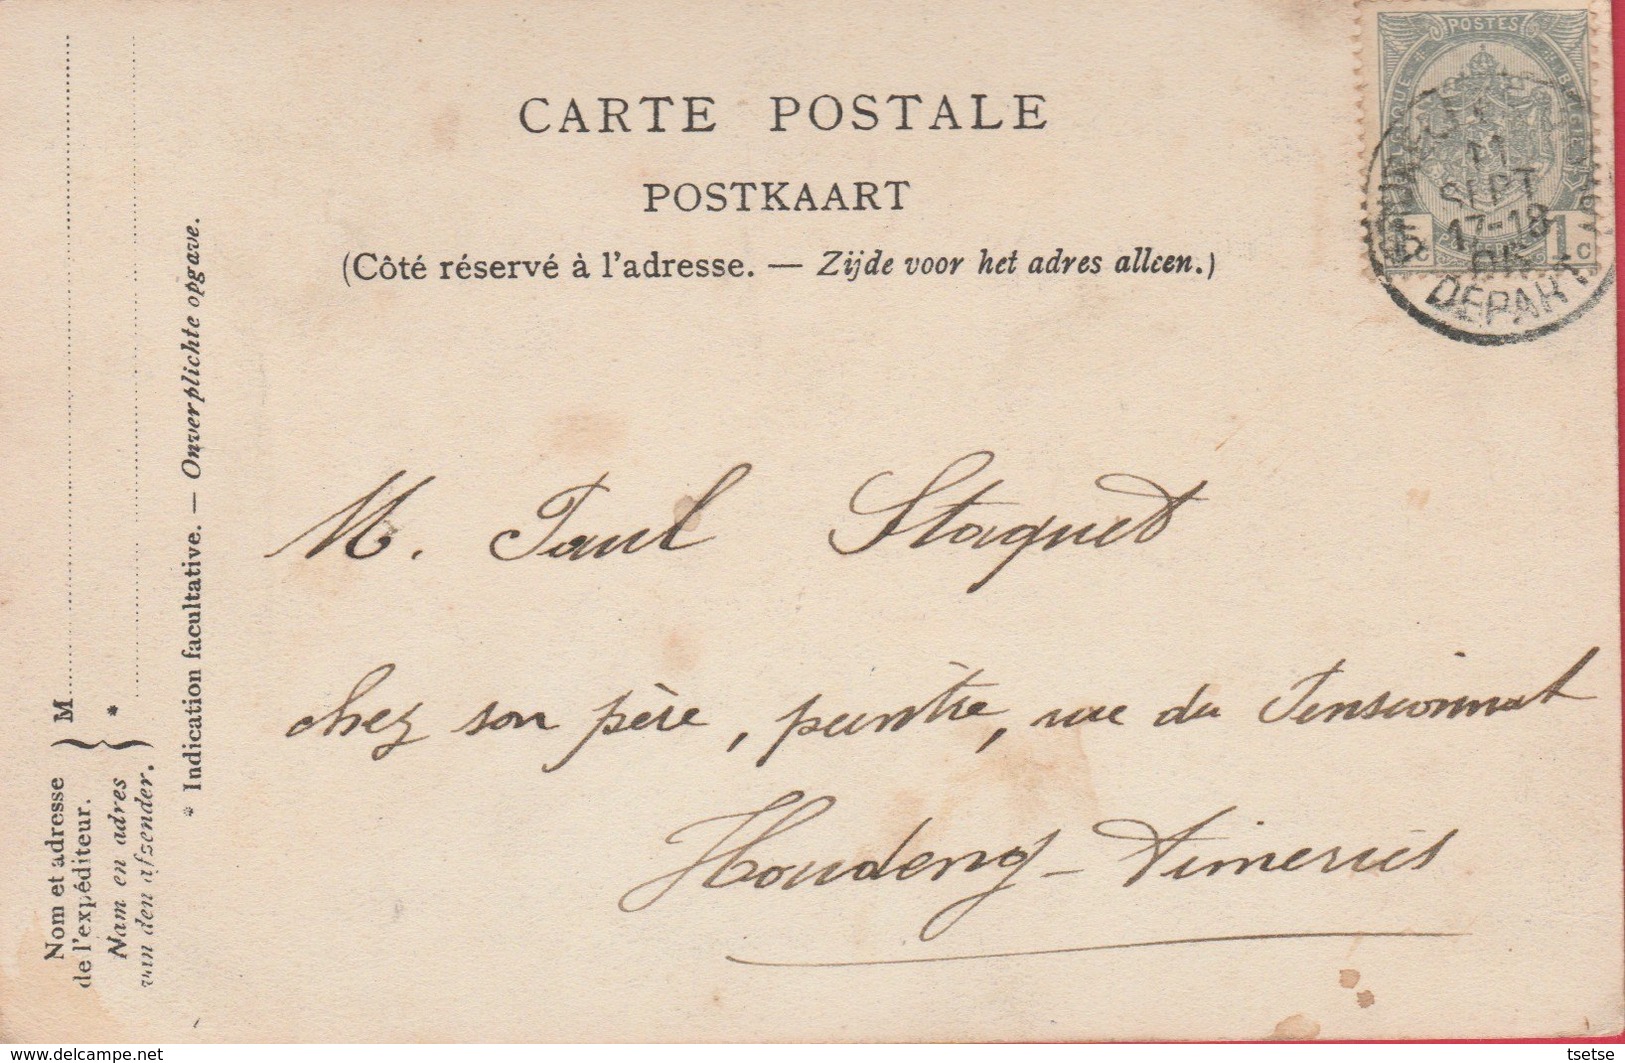 CARTE POSTALE
POSTKAART
(Côté réservé à l'adresse. — Zijde voor het adres alleen.)
POSTES
BELGIQUE
BELGIË
1c
1c
11
SEPT
17-18
DÉPART
M. Paul Staquet
chez son père, peintre, rue du Pensionnat
Houdeng-Aimeries
Nom et adresse
de l'expéditeur.
M
Nam en adres
van den afsender.
*
* Indication facultative. — Onverplichte opgave.
www.delcampe.net
tsetse